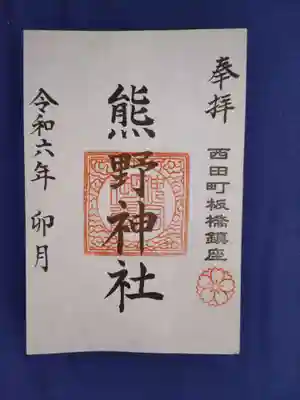 奉拝
西田町板橋鎮座
熊野神社
令和六年 卯月